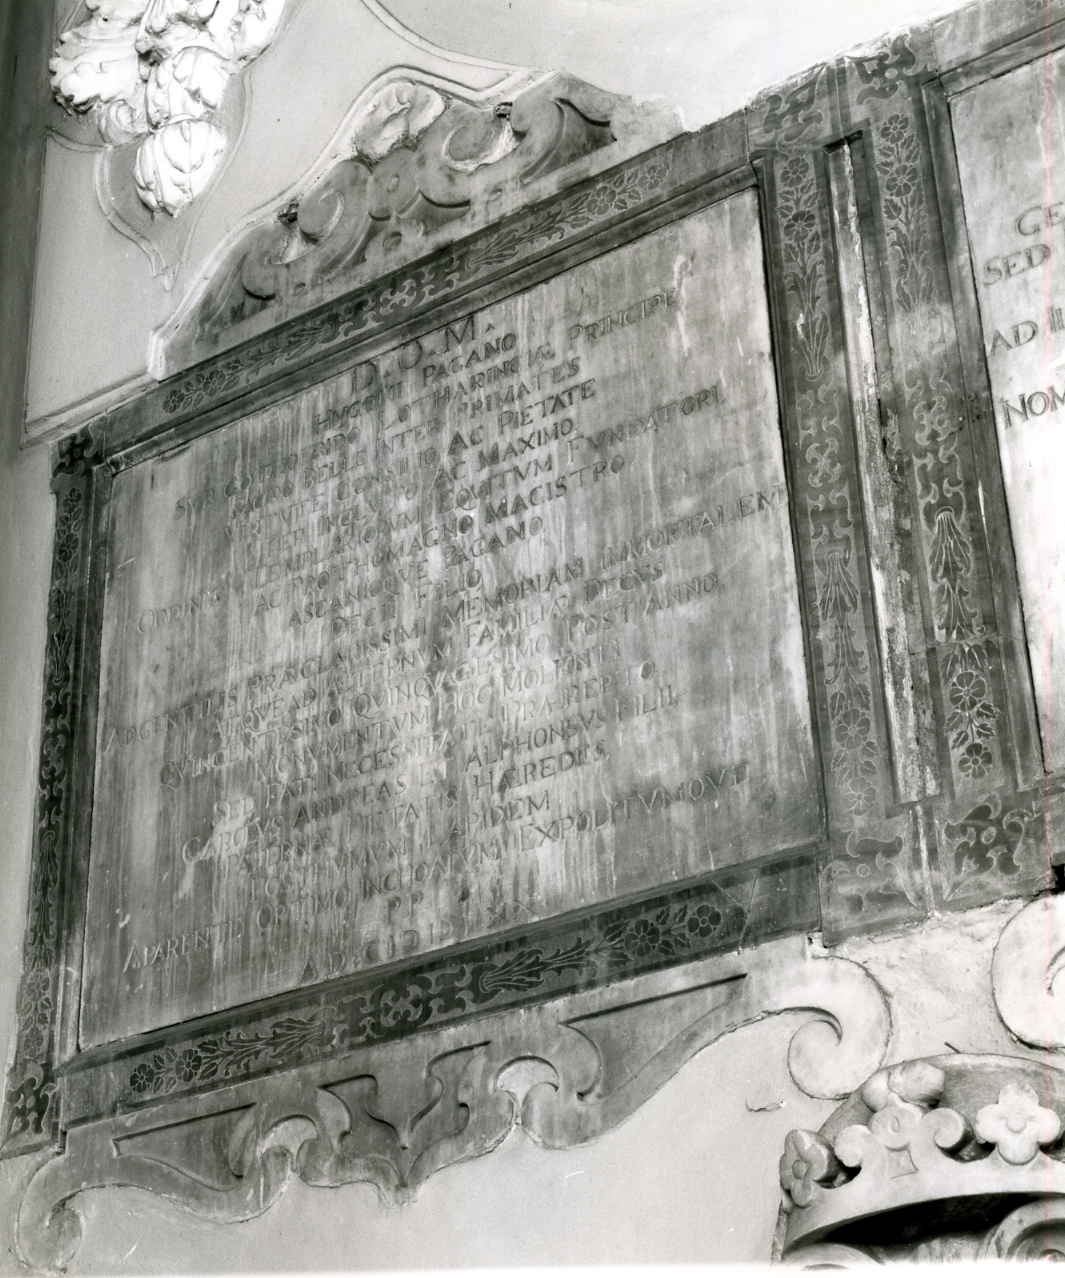 D. O. M.
HVGONI PAGANO PRINCIPE
SVB GOTHIFRIDO LOTHARINGIÆ
SACRO BELLO INTER PRIMATES
VIRTVTE CONSILIO AC PIETATE
ITER INCLYTO AC MAXIMO
ORDINIS TEMPLARIORVM EQVITVM FVNDATORI
AC PROTHOMAGNO MAGISTRO
ASCANIOQVE PAGANO
DECII FILIO
AD GENTILIS PRÆCLARISSIMI MEMORIAM IMMORTALEM
ATQVE AD ÆTERNVM FAMILIÆ DECVS
QVINGENTESIMO QVINQVAGESIMO POST ANNO
MONVMENTVM HOC MOLIENTI
SED FATI NECESSITATE PRÆREPTO
CAROLVS ANDREAS ET ALPHONSVS FILII
PATERNÆ PIETATIS HÆREDES
POSTHVMVM LAPIDEM
A PARENTE OPTIMO INCHOATVM EXPOLITVMQVE
P. P.
A. D. CIƆ IƆ
SED
AD
NOM